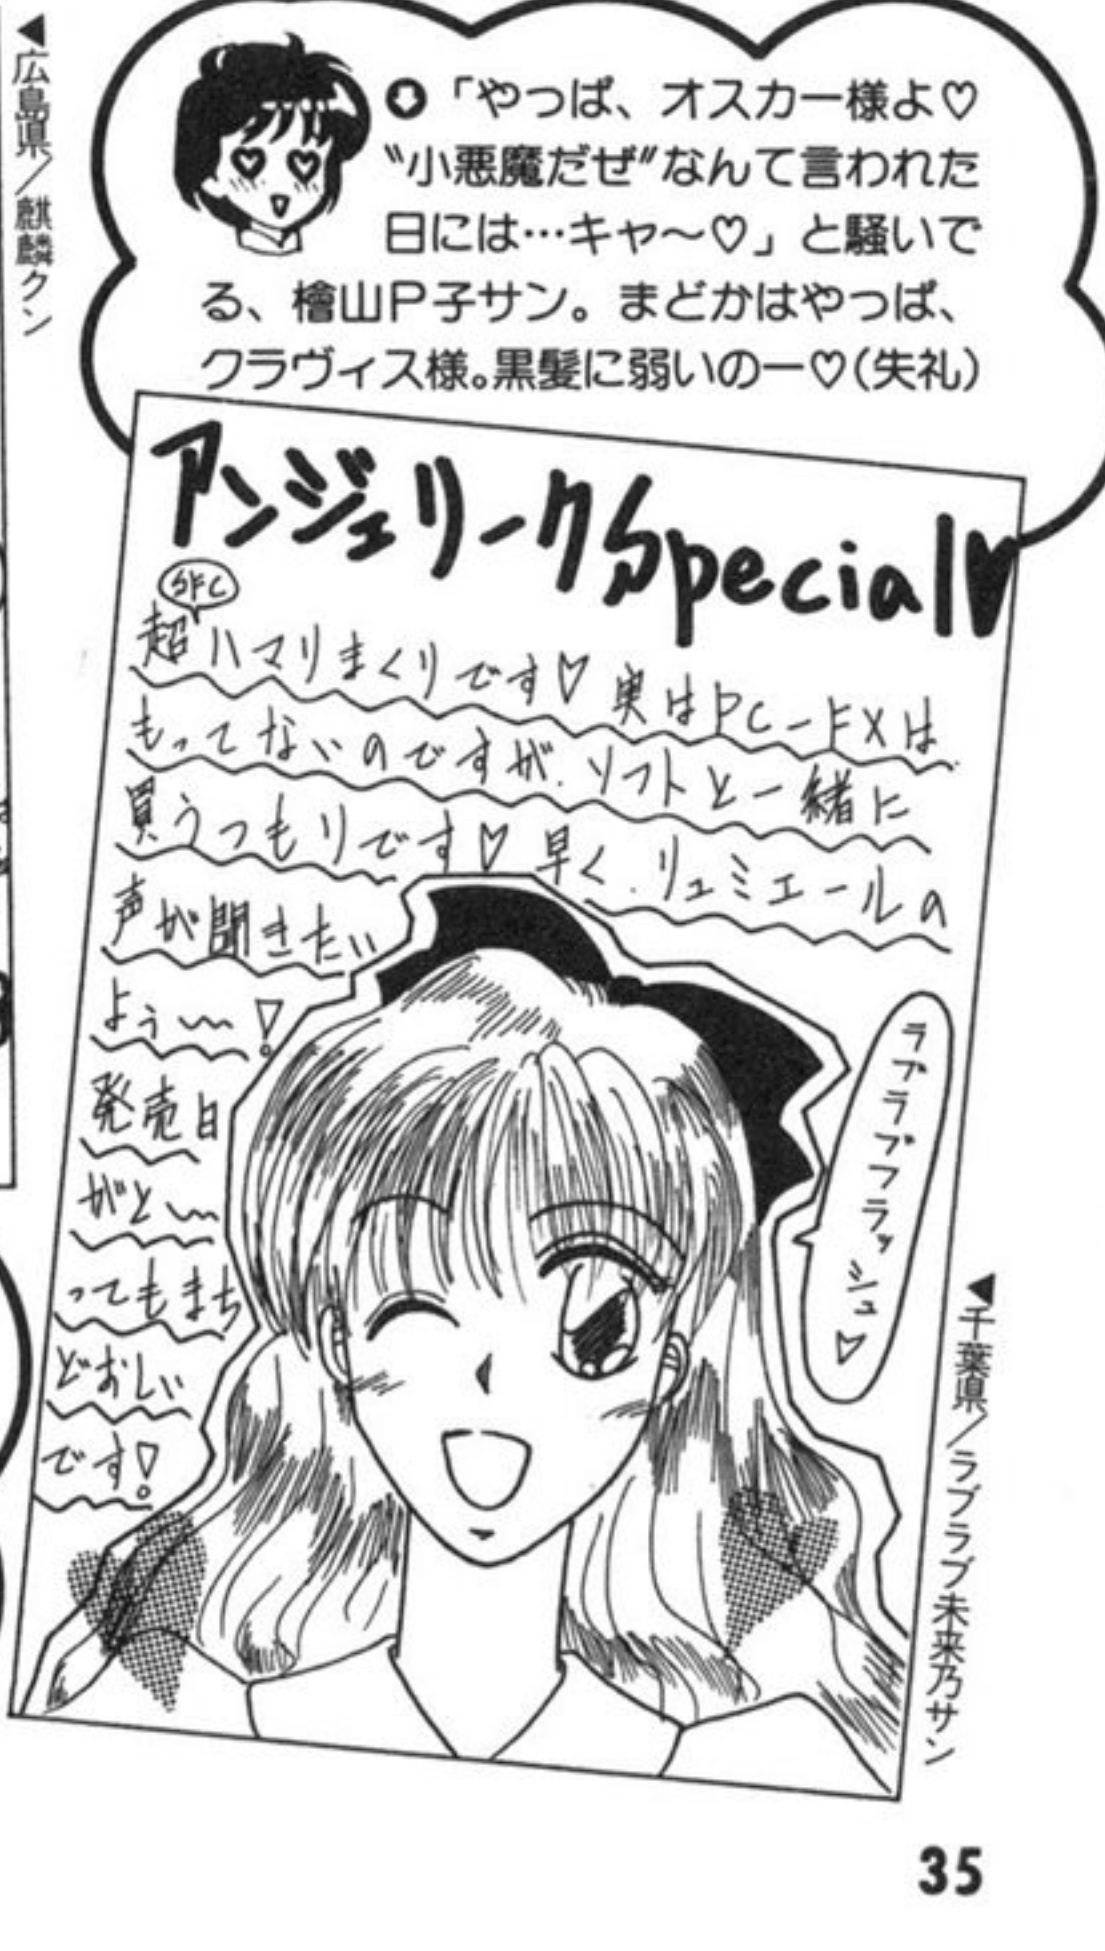 ◀広島県／麒麟クン
「やっぱ、オスカー様よ♡
〝小悪魔だぜ〟なんて言われた
日には…キャ〜♡」と騒いで
る、檜山P子サン。まどかはやっぱ、
クラヴィス様。黒髪に弱いのー♡（失礼）
アンジェリークSpecial♥
SFC
超ハマりまくりです♡ 実はPC-FXは
もってないのですが、ソフトと一緒に
買うつもりです♡ 早く、リュミエールの
声が聞きたい
よぅ〜!
発売日
がと〜
ってもまち
どおしい
です!
ラブラブフラッシュ♡
◀千葉県／ラブラブ未来乃サン
35